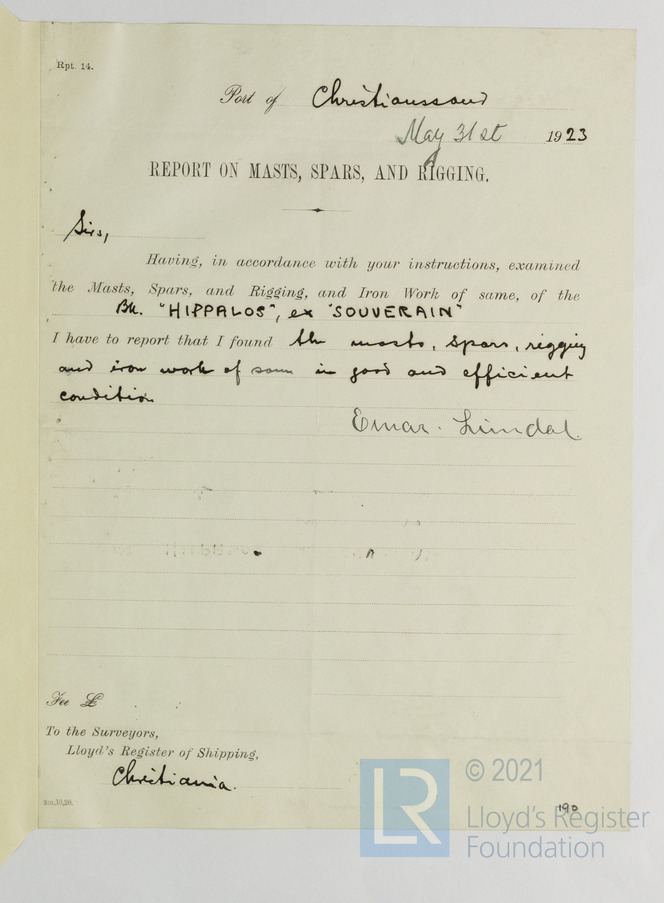 Rpt. 14.
Port of Christianssand
May 31st 1923
REPORT ON MASTS, SPARS, AND RIGGING.
Sirs,
Having, in accordance with your instructions, examined
the Masts, Spars, and Rigging, and Iron Work of same, of the
Bk. "HIPPALOS", ex "SOUVERAIN"
I have to report that I found the masts, spars, rigging
and iron work of same in good and efficient
condition
Einar. Lundal.
Fee £
To the Surveyors,
Lloyd's Register of Shipping,
Christiania.
190
LR
© 2021
Lloyd's Register
Foundation